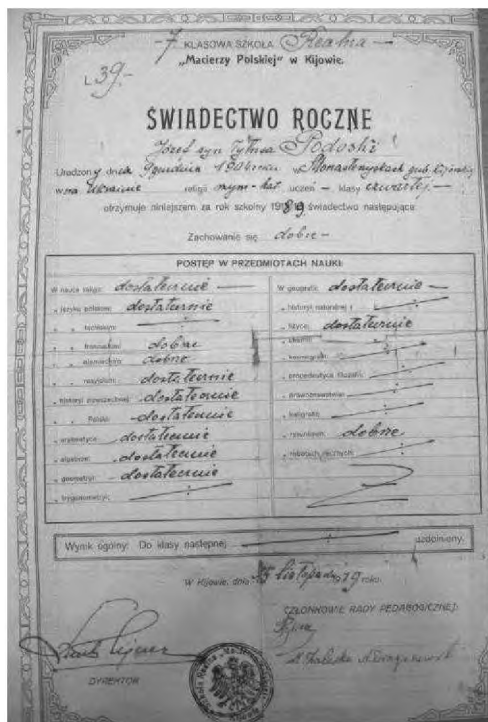 7 KLASOWA SZKOŁA Realna
„Macierzy Polskiej" w Kijowie.
L 39.-
ŚWIADECTWO ROCZNE
Józef syn Tytusa Podoski
Urodzony dnia grudnia 1904 roku w Monasterzyskach gub. Kijowskiej
wzna Ukrainie religji rzym-kat. uczeń - klasy czwartej
otrzymuje niniejszem za rok szkolny 1918/19 świadectwo następujące:
Zachowanie się dobre
POSTĘP W PRZEDMIOTACH NAUKI:
W nauce religji: dostatecznie
„ języku polskim: dostatecznie
„ „ łacińskim:
„ „ francuskim: dobrze
„ „ niemieckim: dobrze
„ „ rosyjskim: dostatecznie
„ historji powszechnej: dostatecznie
„ „ Polski: dostatecznie
„ arytmetyce: dostatecznie
„ algebrze: dostatecznie
„ geometryi: dostatecznie
„ trygonometryi:
W geografii: dostatecznie
„ historyi naturalnej:
„ fizyce: dostatecznie
„ chemii:
„ kosmografii:
„ propedeutyce filozofii:
„ prawoznawstwie:
„ kaligrafii:
„ rysunkach: dobrze
„ robotach ręcznych:
Wynik ogólny: Do klasy następnej uzdolniony.
W Kijowie, dnia 15 listopada 1919 roku
CZŁONKOWIE RADY PEDAGOGICZNEJ:
DYREKTOR